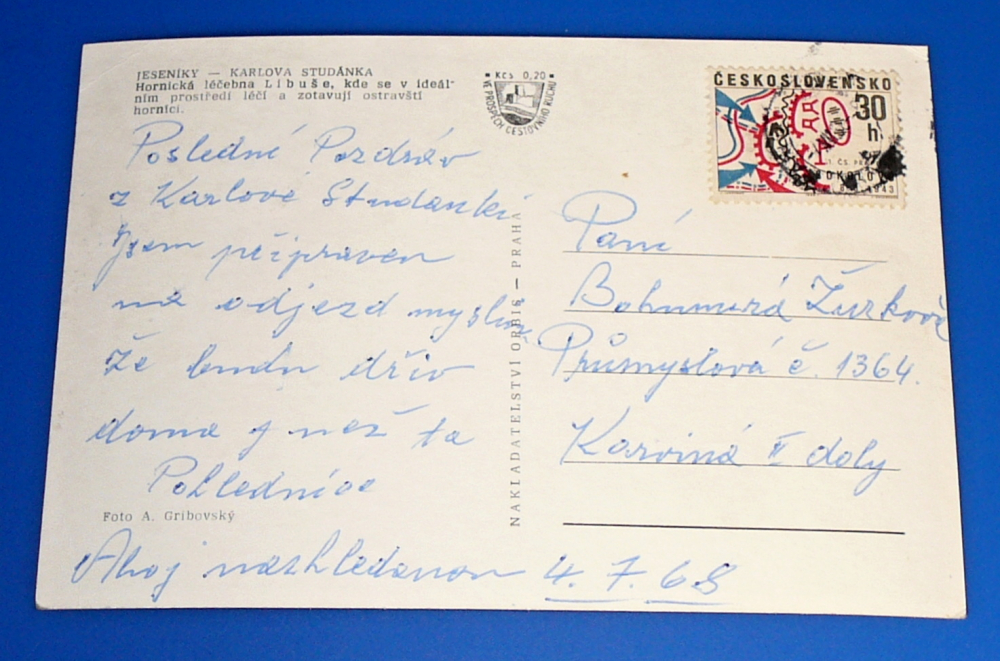 JESENÍKY — KARLOVA STUDÁNKA
Hornická léčebna Libuše, kde se v ideál-
ním prostředí léčí a zotavují ostravští
horníci.
Kčs 0,20
VE PROSPĚCH CESTOVNÍHO RUCHU
ČESKOSLOVENSKO
30
h
1943
Poslední Pozdrav
z Karlové Studánki
Jsem připraven
na odjezd myslím
že budu dřív
doma j než ta
Pohlednice
Foto A. Gribovský
Ahoj nashledanou 4. 7. 68
NAKLADATELSTVÍ ORBIS — PRAHA
Paní
Bohumira Žurková
Průmyslová č. 1364.
Karviná II doly